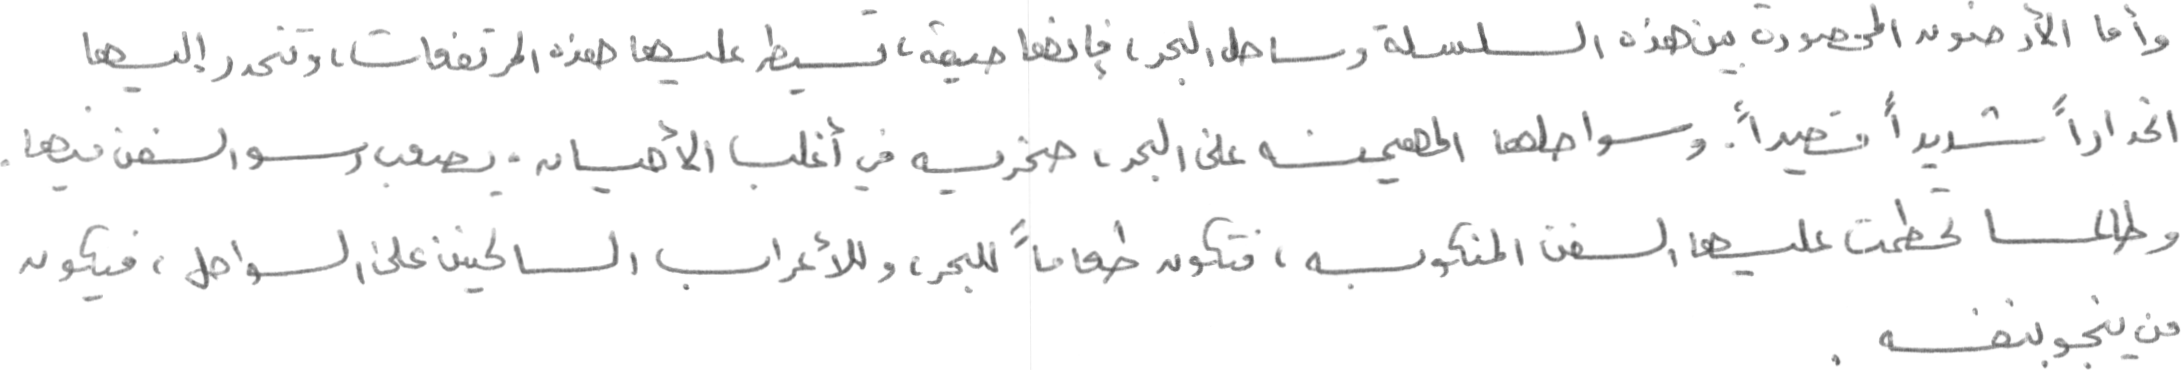 وأما الأرضون المحصورة بين هذه السلسلة وساحل البحر، فإنها ضيقة، تسيطر عليها هذه المرتفعات، وتنحدر إليها
انحداراً شديداً قصيراً. وسواحلها المهيمنه على البحر، صخريه في أغلب الأحيان. يصعب رسو السفن فيها.
وطالما تحطمت عليها السفن المنكوبه، فتكون طعاماً للبحر، وللأعراب الساكنين على السواحل، فيكون
من ينجو بنفسه.